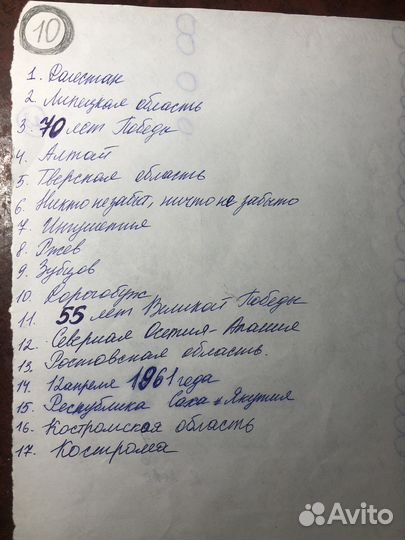 10
1. Дагестан
2. Липецкая область
3. 70 лет Победы
4. Алтай
5. Тверская область
6. Никто не забыт, ничто не забыто
7. Ингушетия
8. Ржев
9. Зубцов
10. Дорогобуж
11. 55 лет Великой Победы
12. Северная Осетия - Алания
13. Ростовская область.
14. 12 апреля 1961 года
15. Республика Саха Якутия
16. Костромская область
17. Кострома
Avito